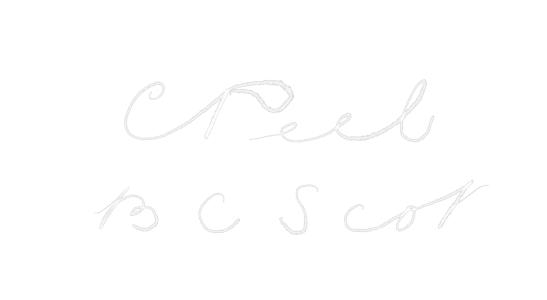 C Peel
B C Scot